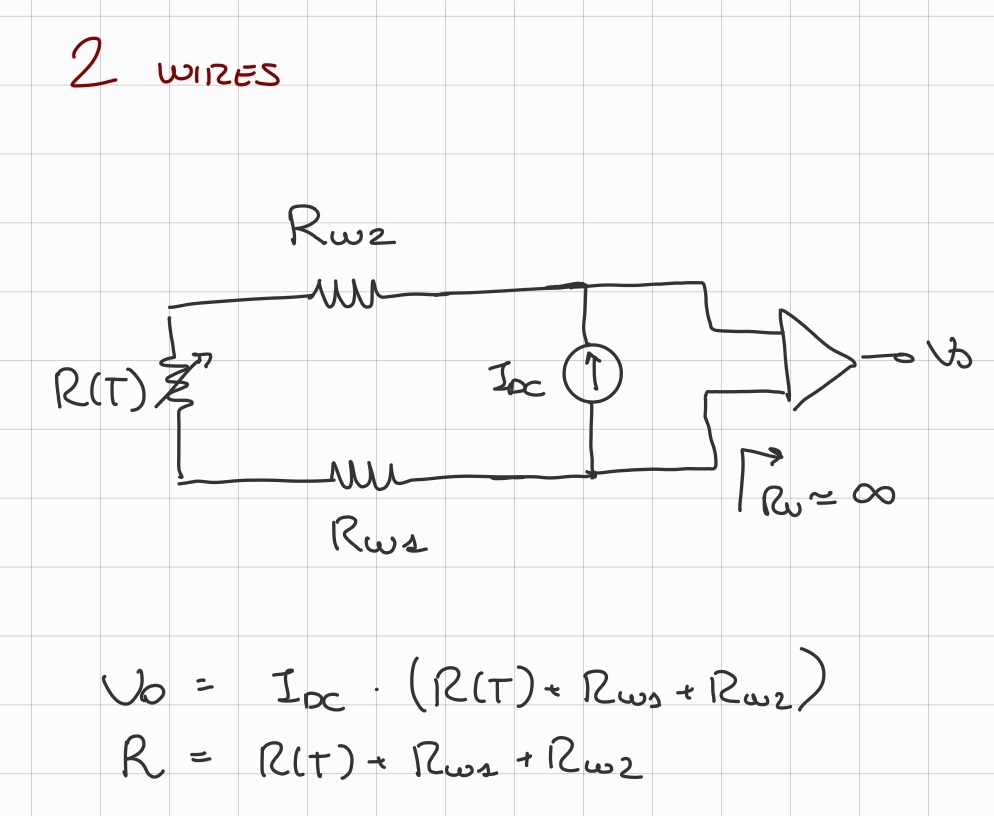 2 WIRES
Rw2
R(T)
IDC
Vo
Rv ≃ ∞
Rw1
Vo = IDC · (R(T) + Rw1 + Rw2)
R = R(T) + Rw1 + Rw2